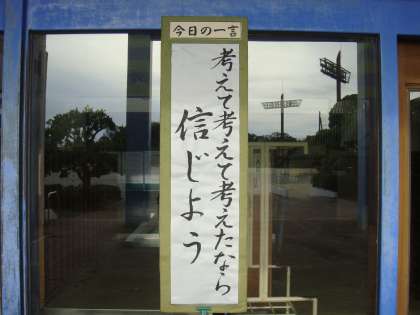 今日の一言
考えて考えて考えたなら
信じよう